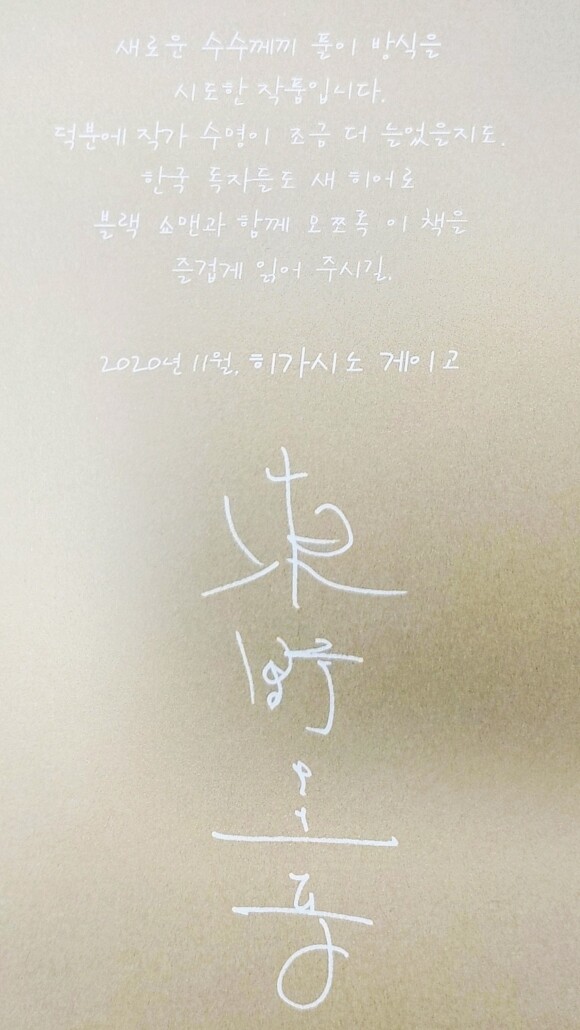 새로운 수수께끼 풀이 방식을
시도한 작품입니다.
덕분에 작가 수명이 조금 더 늘었을지도.
한국 독자들도 새 히어로
블랙 쇼맨과 함께 오쪼록 이 책을
즐겁게 읽어 주시길.
2020년 11월, 히가시노 게이고
東
野
圭
吾